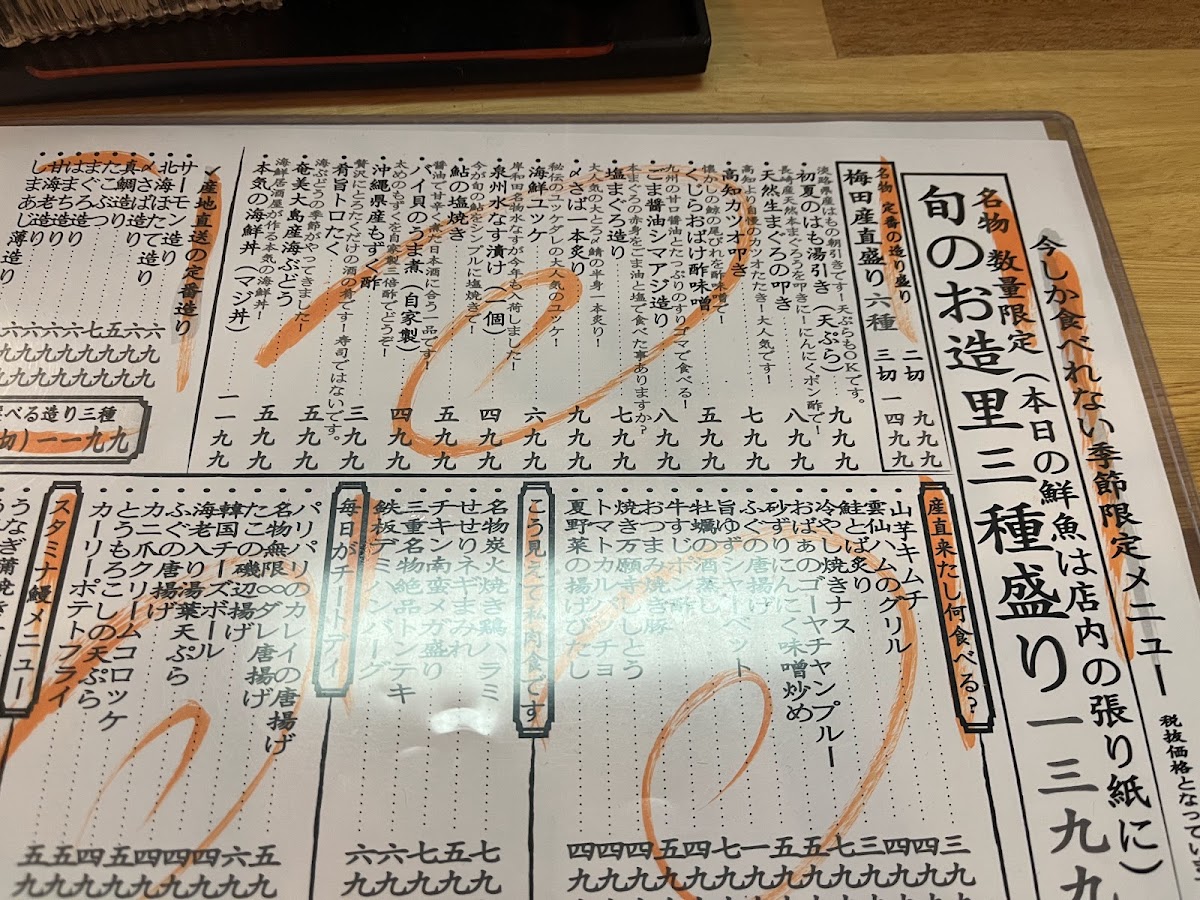 今しか食べれない季節限定メニュー
税抜価格となってい
名物 数量限定(本日の鮮魚は店内の張り紙に)
旬のお造里三種盛り一三九九
名物 定番の造り盛り
梅田産直盛り六種
二切 九九九
三切 一四九九
淡路県産はもの朝引きです!天ぷらもOKです。
初夏のはも湯引き(天ぷら)九九九
長崎産天然本まぐろを叩きに!にんにくポン酢で!
天然生まぐろの叩き 八九九
高知より自慢のカツオたたき!大人気です!
高知カツオ叩き 七九九
懐かしの鯨の尾びれを酢味噌で!
くじらおばけ酢味噌 五九九
九州の甘口醤油とたっぷりのすりゴマで食べる!
ごま醤油シマアジ造り 八九九
本まぐろの赤身をごま油と塩で食べた事ありますか?
塩まぐろ造り 七九九
大人気の大とろ〆鯖の半身一本炙り!
〆さば一本炙り 九九九
秘伝のユッケダレの大人気のユッケ!
海鮮ユッケ 六九九
岸和田名物水なすが今年も入荷しました!
泉州水なす漬け(一個)四九九
今が旬の鮎をシンプルに塩焼きで!
鮎の塩焼き 九九九
醤油で甘辛く煮た日本酒に合う一品です!
バイ貝のうま煮(自家製)五九九
太めのもずくを自家製三倍酢でどうぞ!
沖縄県産もずく酢 四九九
贅沢にとろたくだけの酒の肴です!寿司ではないです。
肴旨トロたく 三九九
海ぶどうの季節がやってきました!
奄美大島産海ぶどう 五九九
海鮮居酒屋が作る本気の海鮮丼!
本気の海鮮丼(マジ丼)一一九九
産地直送の定番造り
サーモン造り 六九九
北海ほたて造り 六九九
〆さば造り 五九九
真鯛造り 七九九
たこぶつ 六九九
まぐろ造り 六九九
はまち造り 六九九
甘海老造り 六九九
しまあじ薄造り
べる造り三種
切)一一九九
産直来たし何食べる?
山芋キムチ 三九
雲仙ハムのグリル 四九
鮭とば炙り 四九
冷やし焼きナス 三九
おばぁのゴーヤチャンプルー 七九
砂ずりにんにく味噌炒め 五九
ふぐの唐揚げ 五九
旨ゆずシャーベット 一九
牡蠣の酒蒸し 七九
牛すじポン酢 四九
おつまみ焼き豚 五九
焼き万願寺ししとう 四九
トマトカルパッチョ 四九
夏野菜の揚げびたし 四九
こう見えて私肉食です
名物炭火焼き鶏ハラミ 七九
せせりネギまみれ 五九
チキン南蛮メガ盛り 七九
三重名物絶品トンテキ 六九
鉄板デミハンバーグ 六九
毎日がチートデイ
パリパリのカレイの唐揚げ 五九
名物無限∞ダレ唐揚げ 六九
たこの磯辺揚げ 四九
韓国チーズボール 四九
海老入り湯葉天ぷら 四九
ふぐの唐揚げ 五九
カニ爪クリームコロッケ 四九
とうもろこしの天ぷら 五九
カーリーポテトフライ 五九
スタミナ鰻メニュー
うなぎ蒲焼き